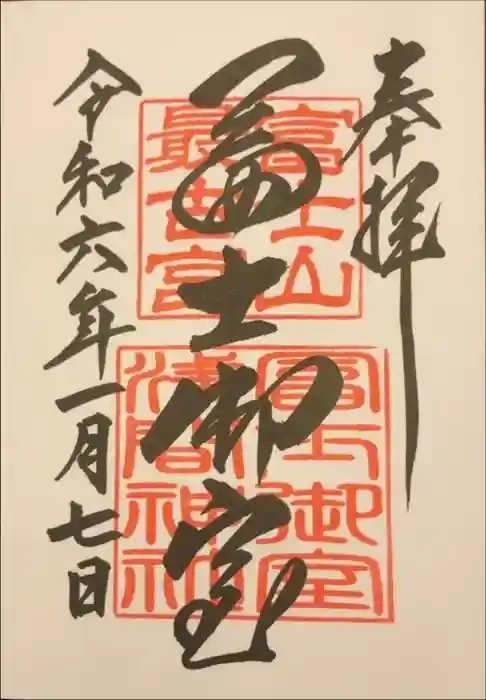 奉拝
富士山
最古宮
冨士御室
冨士御室
浅間神社
令和六年一月七日